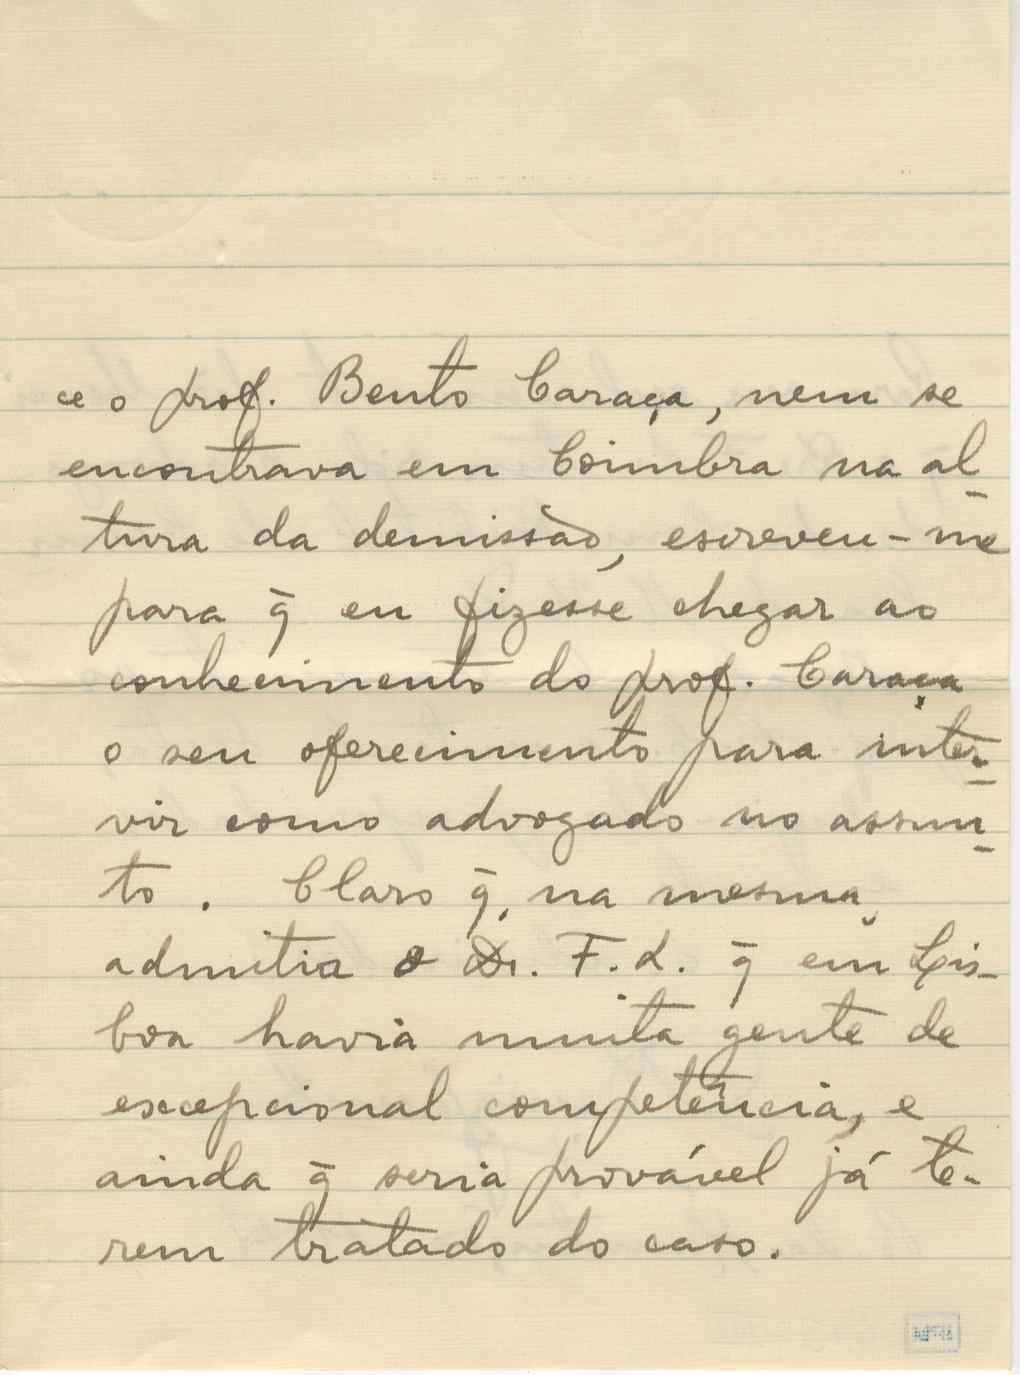 ce o prof. Bento Caraça, nem se
encontrava em Coimbra na al-
tura da demissão, escreveu-me
para q̄ eu fizesse chegar ao
conhecimento do prof. Caraça
o seu oferecimento para inter-
vir como advogado no assun-
to. Claro q̄, na mesma,
admitia o Dr. F. L. q̄ em Lis-
boa havia muita gente de
excepcional competência, e
ainda q̄ seria provável já te-
rem tratado do caso.